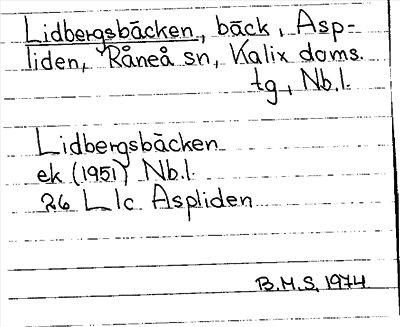 Lidbergsbäcken, bäck, Asp-
liden, Råneå sn, Kalix doms.
tg, Nb.l.
Lidbergsbäcken
ek (1951) Nb.l.
26 L lc Aspliden
B.M.S. 1974